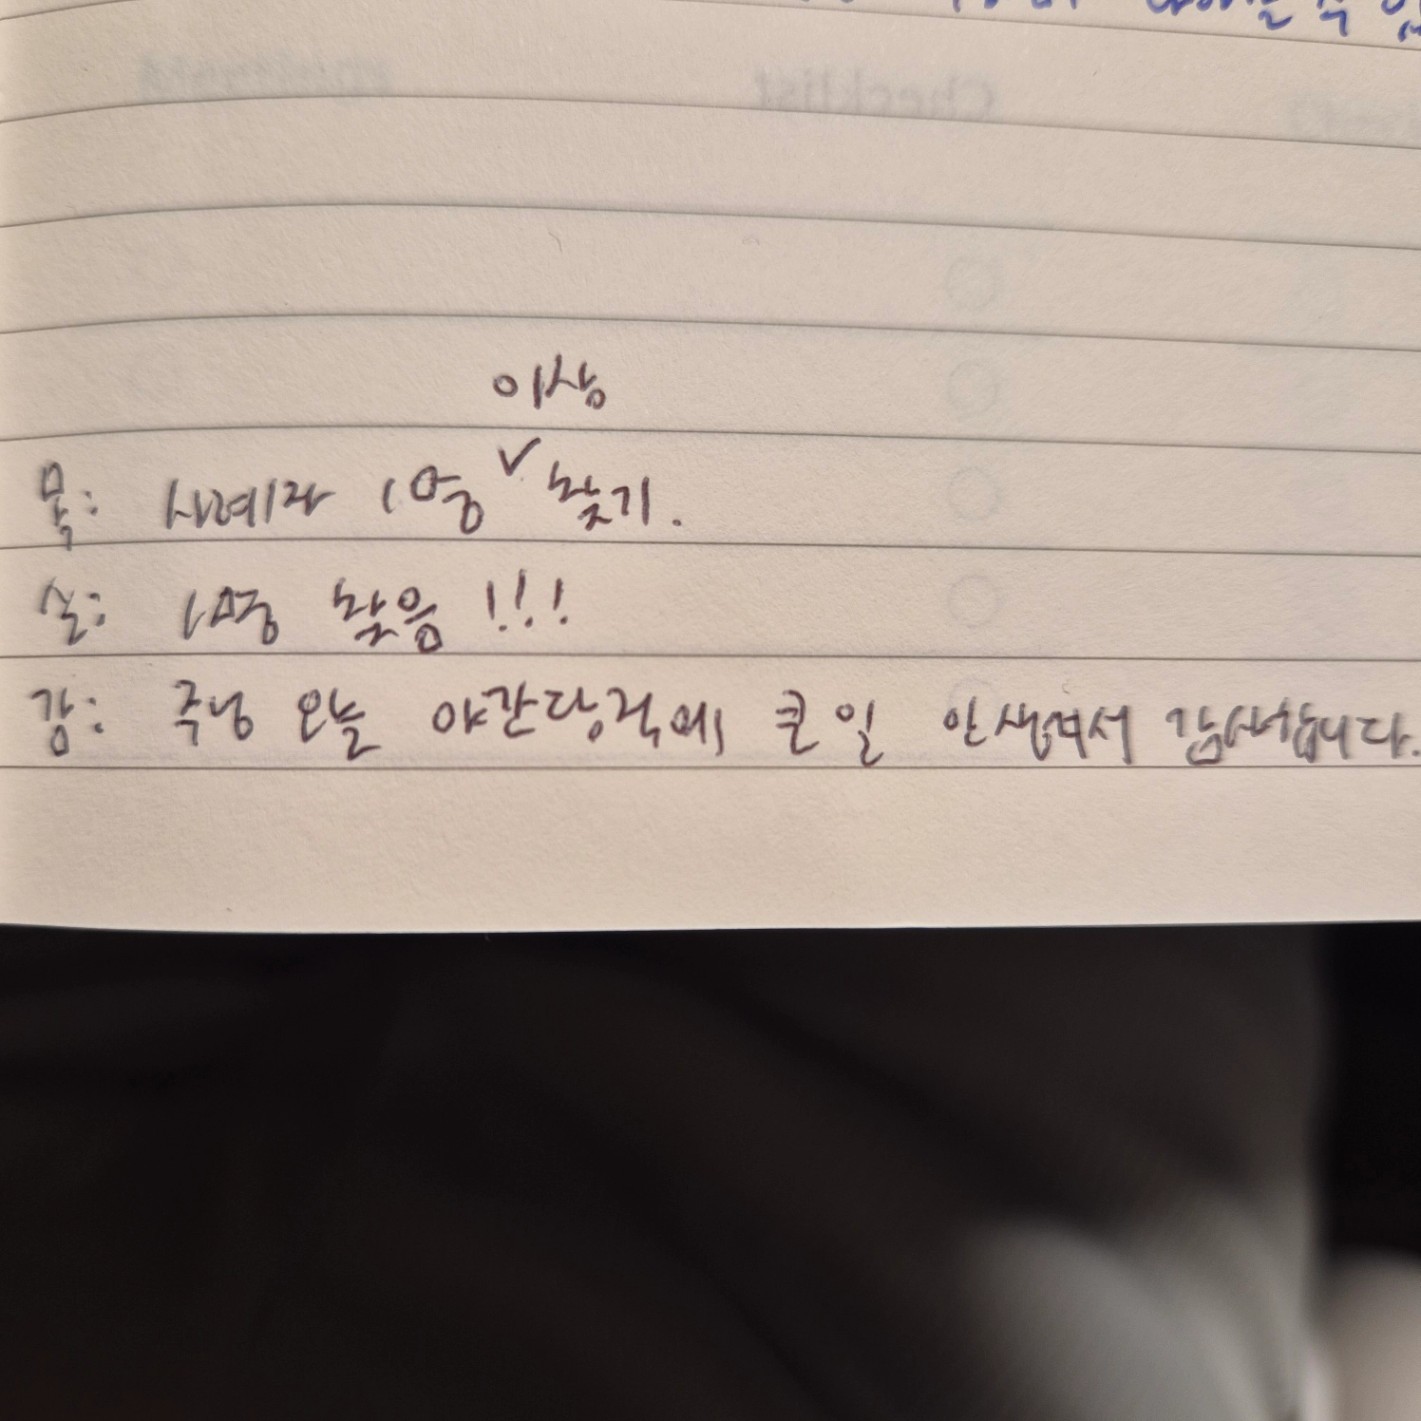 Checklist
이상
목: 사례자 1명 ✓ 찾기.
실: 1명 찾음!!!
감: 주님 오늘 야간당직에 큰일 안생겨서 감사합니다.